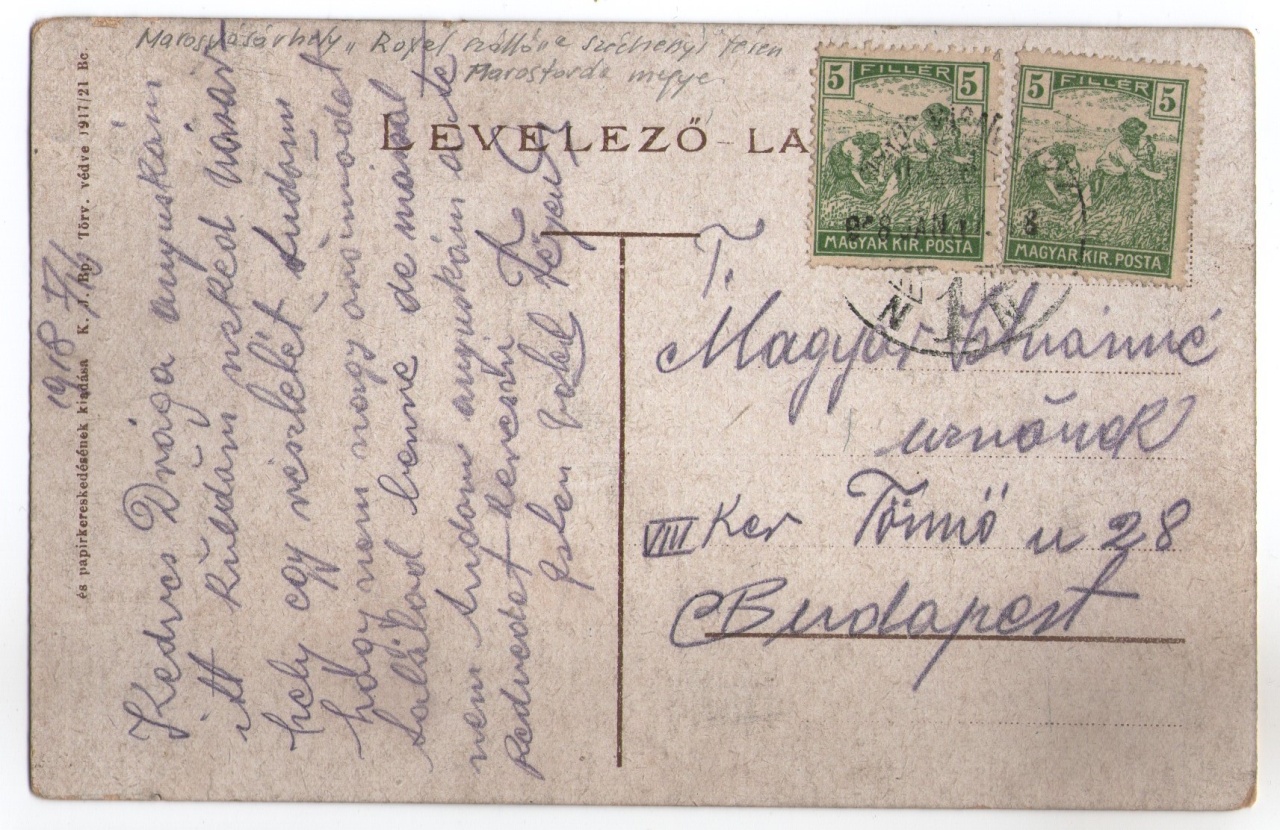 Marosvásárhely „Royal szálló" a Széchenyi téren
Marostorda megye
LEVELEZŐ-LA
5 FILLÉR 5
MAGYAR KIR. POSTA
5 FILLÉR 5
MAGYAR KIR. POSTA
918 JAN
és papirkereskedésének kiadása K. J. Bp. Törv. védve 1917/21 Bc
1918 I/6
Kedves Drága anyuskám
itt küldöm neked vásár
hely egy részletét tudom
hogy nem nagy örömödet
találod benne de mivel
nem tudom anyuskám a te
kedvedet keresni
Isten veled
T.
Magyar Istvánné
urnőnek
VIII Ker Tömő u 28
Budapest